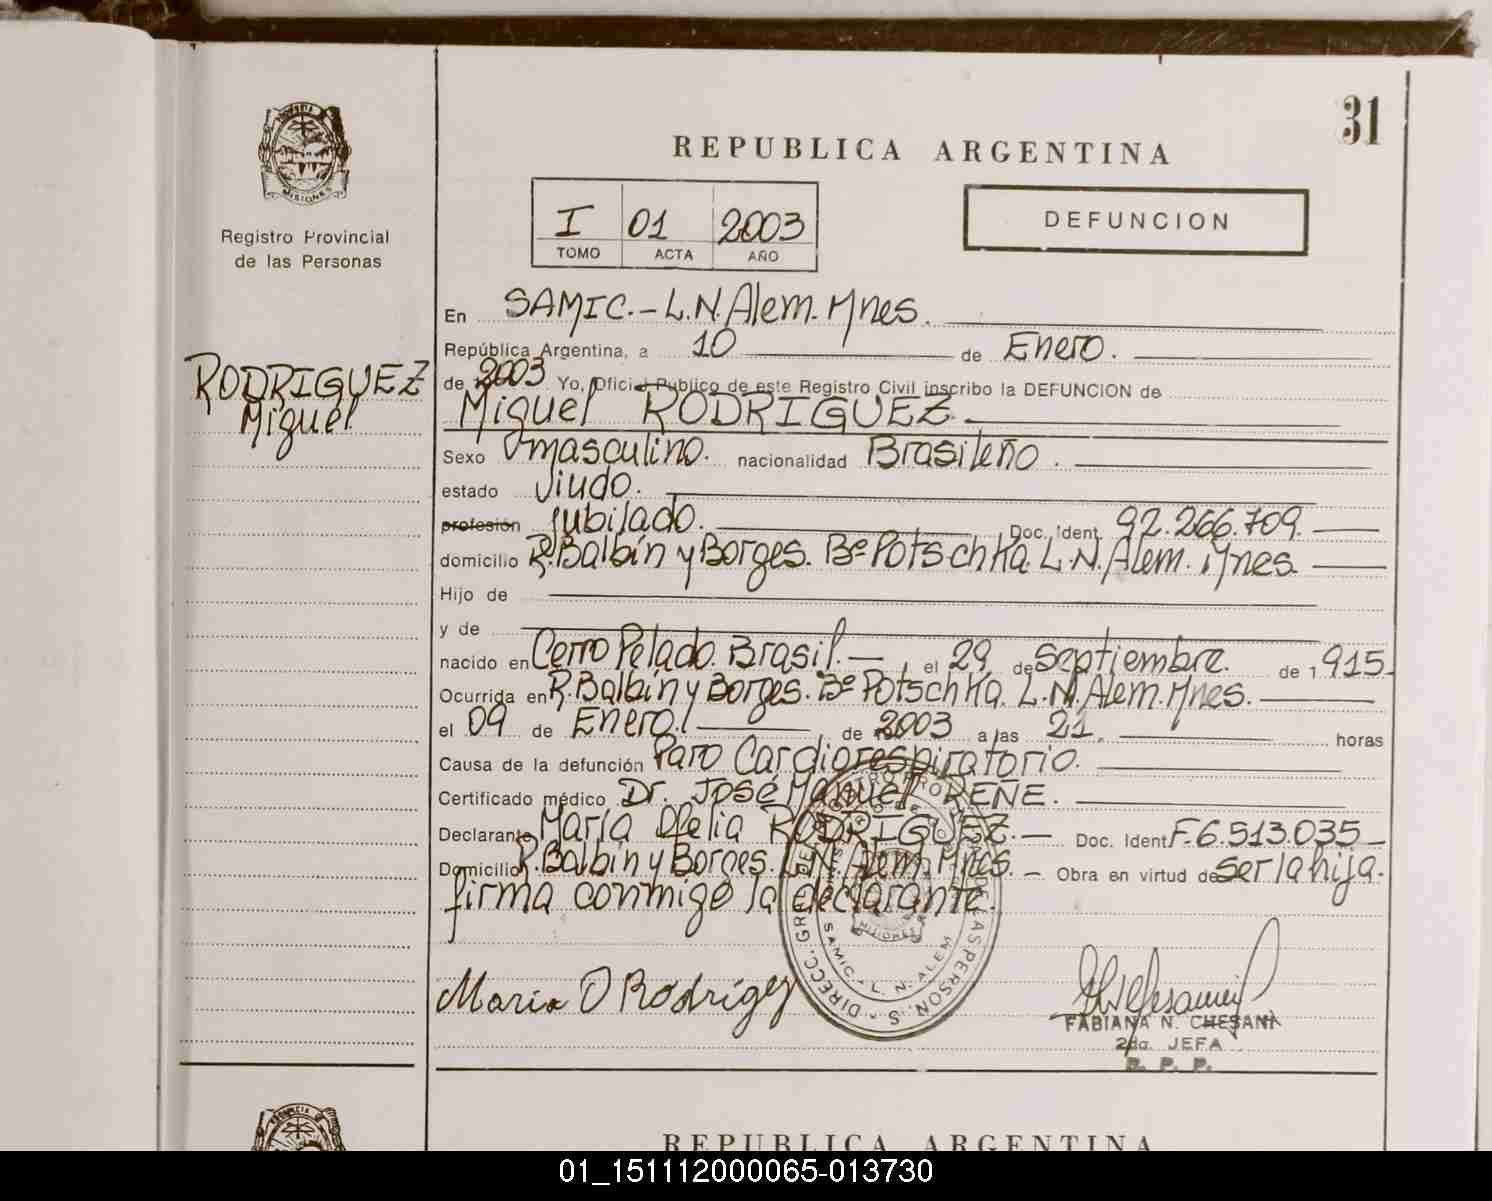 31
REPUBLICA ARGENTINA
MISIONES
Registro Provincial
de las Personas
I 01 2003
TOMO ACTA AÑO
DEFUNCION
RODRIGUEZ
Miguel
En SAMIC.- L.N. Alem. Mnes.
República Argentina, a 10 de Enero.
de 2003 Yo, Oficial Publico de este Registro Civil inscribo la DEFUNCION de
Miguel RODRIGUEZ
Sexo masculino. nacionalidad Brasileño.
estado viudo.
profesión jubilado. Doc. Ident. 92.266.709.
domicilio R. Balbín y Borges. Bº Potschka. L.N. Alem. Mnes.
Hijo de
y de
nacido en Cerro Pelado. Brasil. el 29 de Septiembre. de 1915.
Ocurrida en R. Balbín y Borges. Bº Potschka. L.N. Alem. Mnes.
el 09 de Enero. de 2003 a las 21. horas
Causa de la defunción Paro Cardiorespiratorio.
Certificado médico Dr. José Manuel REÑE.
Declarante María Ofelia RODRIGUEZ. Doc. Ident F.6.513.035
Domicilio R. Balbín y Borges. L.N. Alem. Mnes. Obra en virtud de ser la hija.
firma conmigo la declarante.
SAMIC. - L. N. ALEM
Maria O Rodrigez
FABIANA N. CHESANI
2da. JEFA
R. P. P.
REPUBLICA ARGENTINA
01_151112000065-013730